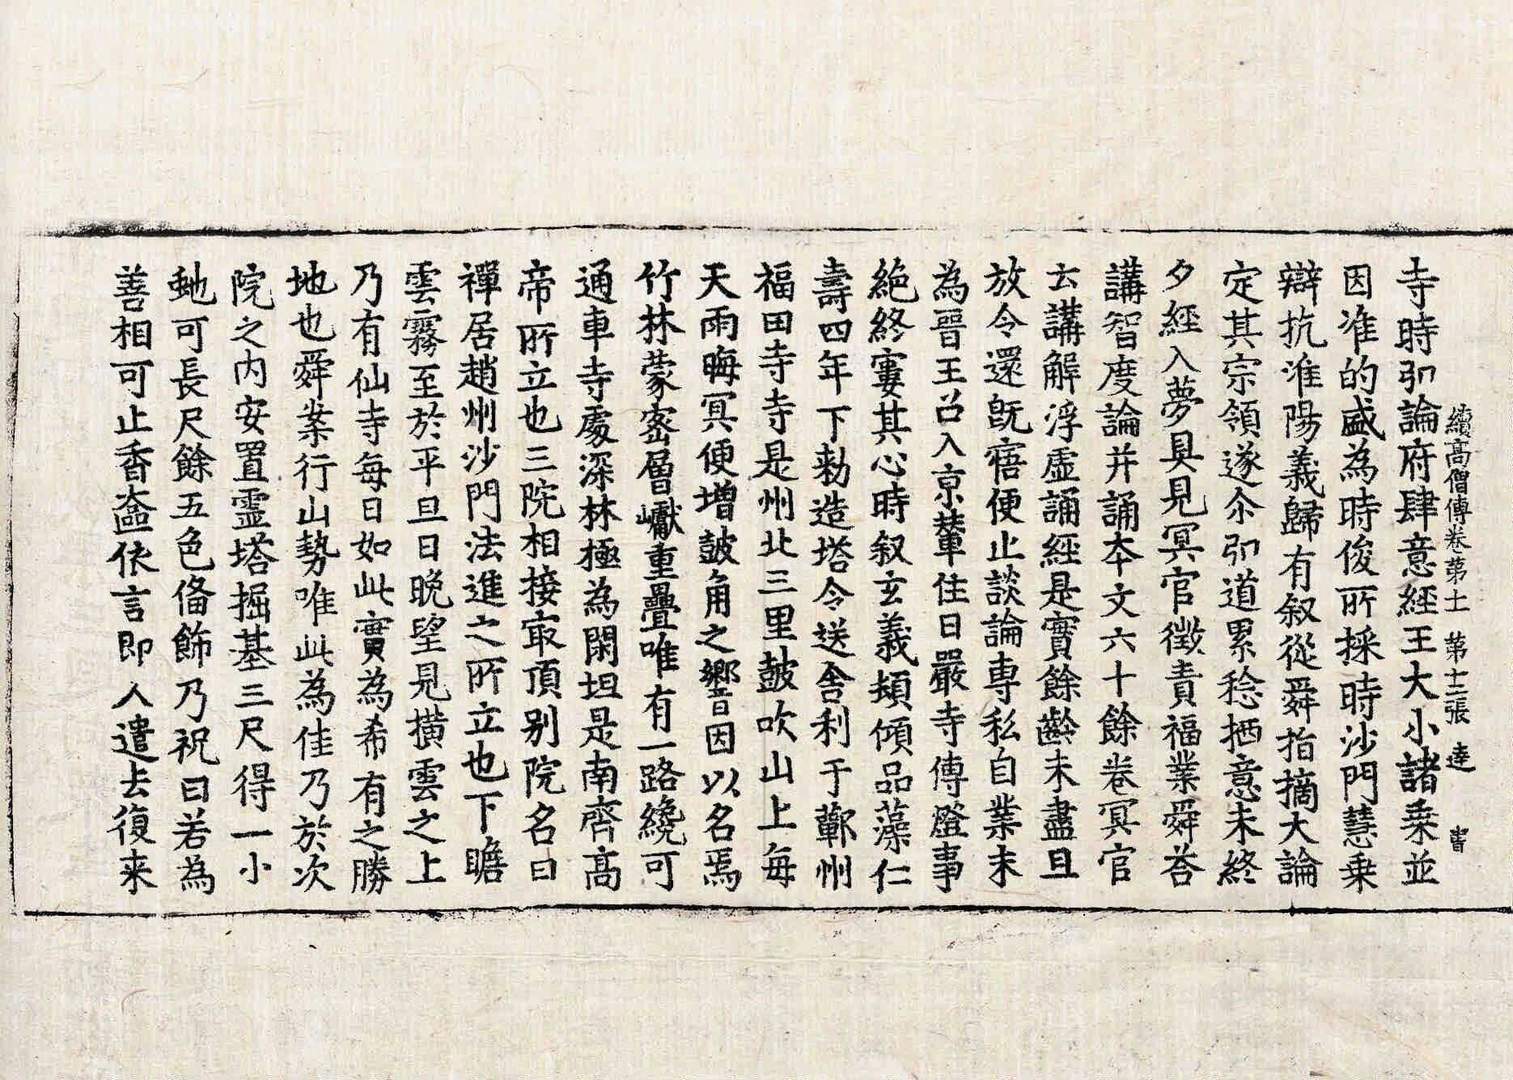 續高僧傳卷第十一 第十二張 達 𠹉
寺時卬論府肆意經王大小諸乗並
因准的盛為時俊所採時沙門慧乗
辯抗淮陽義歸有叙從舜指摘大論
定其宗領遂尒卬道累稔栖意未終
夕經入夢具見冥官徵責福業舜荅
講智度論并誦本文六十餘卷冥官
云講解浮虛誦經是實餘齡未盡且
放令還既寤便止談論專私自業末
為晉王召入京輦住日嚴寺傳燈事
絕終窶其心時叙玄義頻傾品藻仁
壽四年下勑造塔令送舍利于蘄州
福田寺寺是州北三里皷吹山上每
天雨晦冥便增皷角之響因以名焉
竹林蒙密層巘重疊唯有一路纔可
通車寺處深林極為閑坦是南齊高
帝所立也三院相接㝡頂别院名曰
禪居趙州沙門法進之所立也下瞻
雲霧至於平旦日晚望見橫雲之上
乃有仙寺每日如此實為希有之勝
地也舜案行山勢唯此為佳乃於次
院之内安置靈塔掘基三尺得一小
虵可長尺餘五色俻飾乃祝曰若為
善相可止香奩依言即入遣去復来